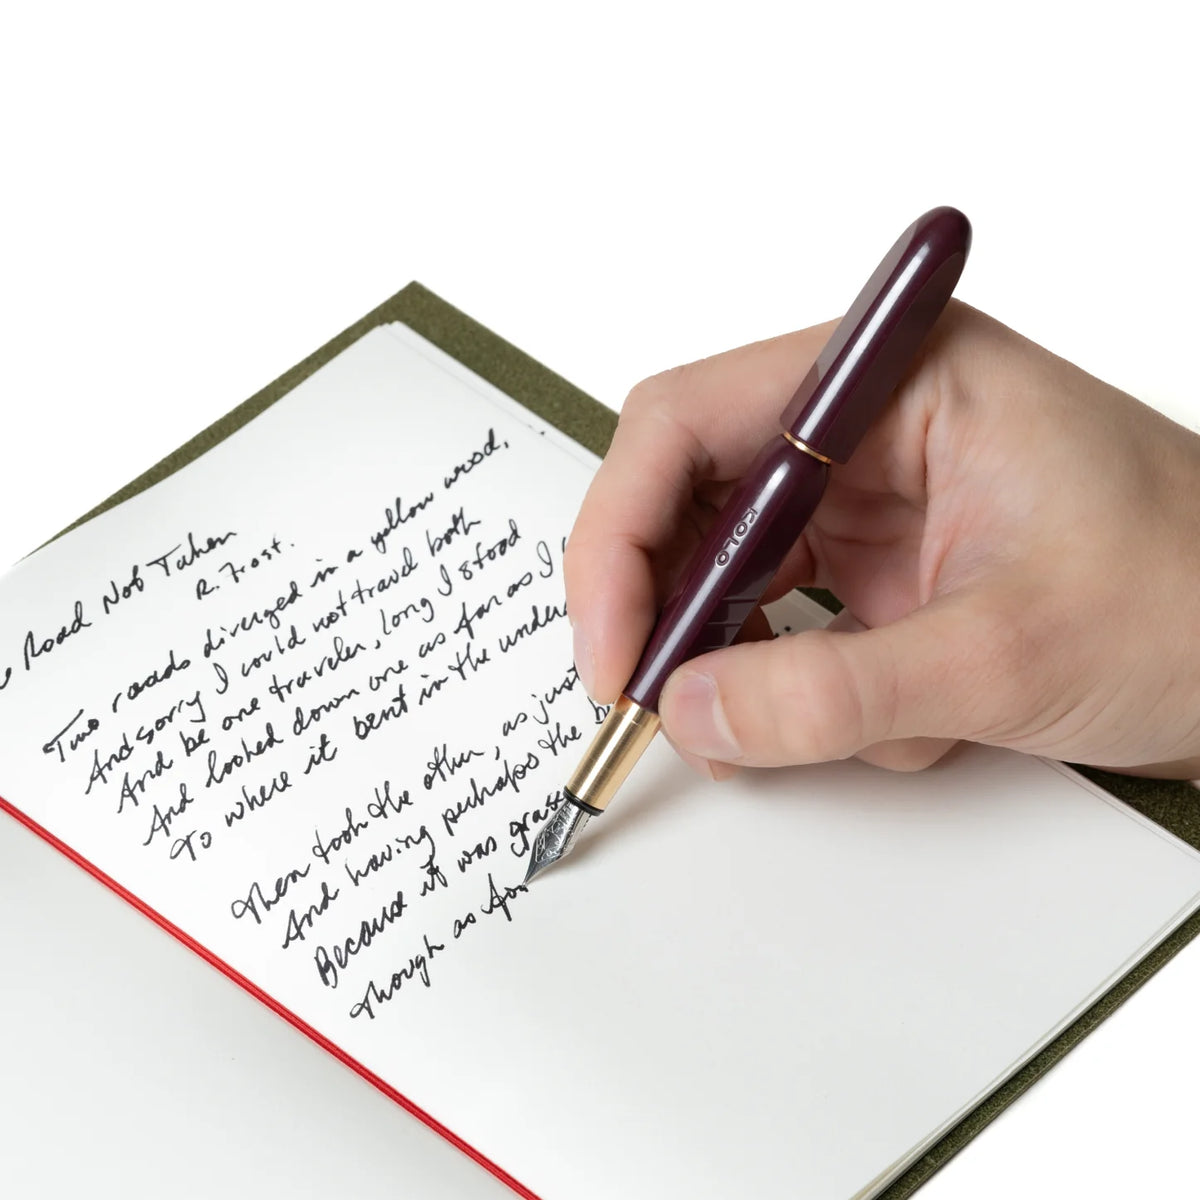 Road Not Taken
R. Frost.
Two roads diverged in a yellow wood,
And sorry I could not travel both
And be one traveler, long I stood
And looked down one as far as I
To where it bent in the under
Then took the other, as just
And having perhaps the b
Because it was grass
though as for
KOLO